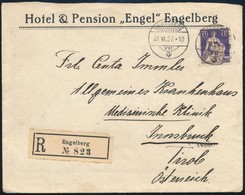 Hotel & Pension „Engel“ Engelberg
Frl. Centa Immler
Allgemeines Krankenhaus
Medizinische Klinik
Innsbruck
Tirol
Österreich
R
Engelberg
№ 823